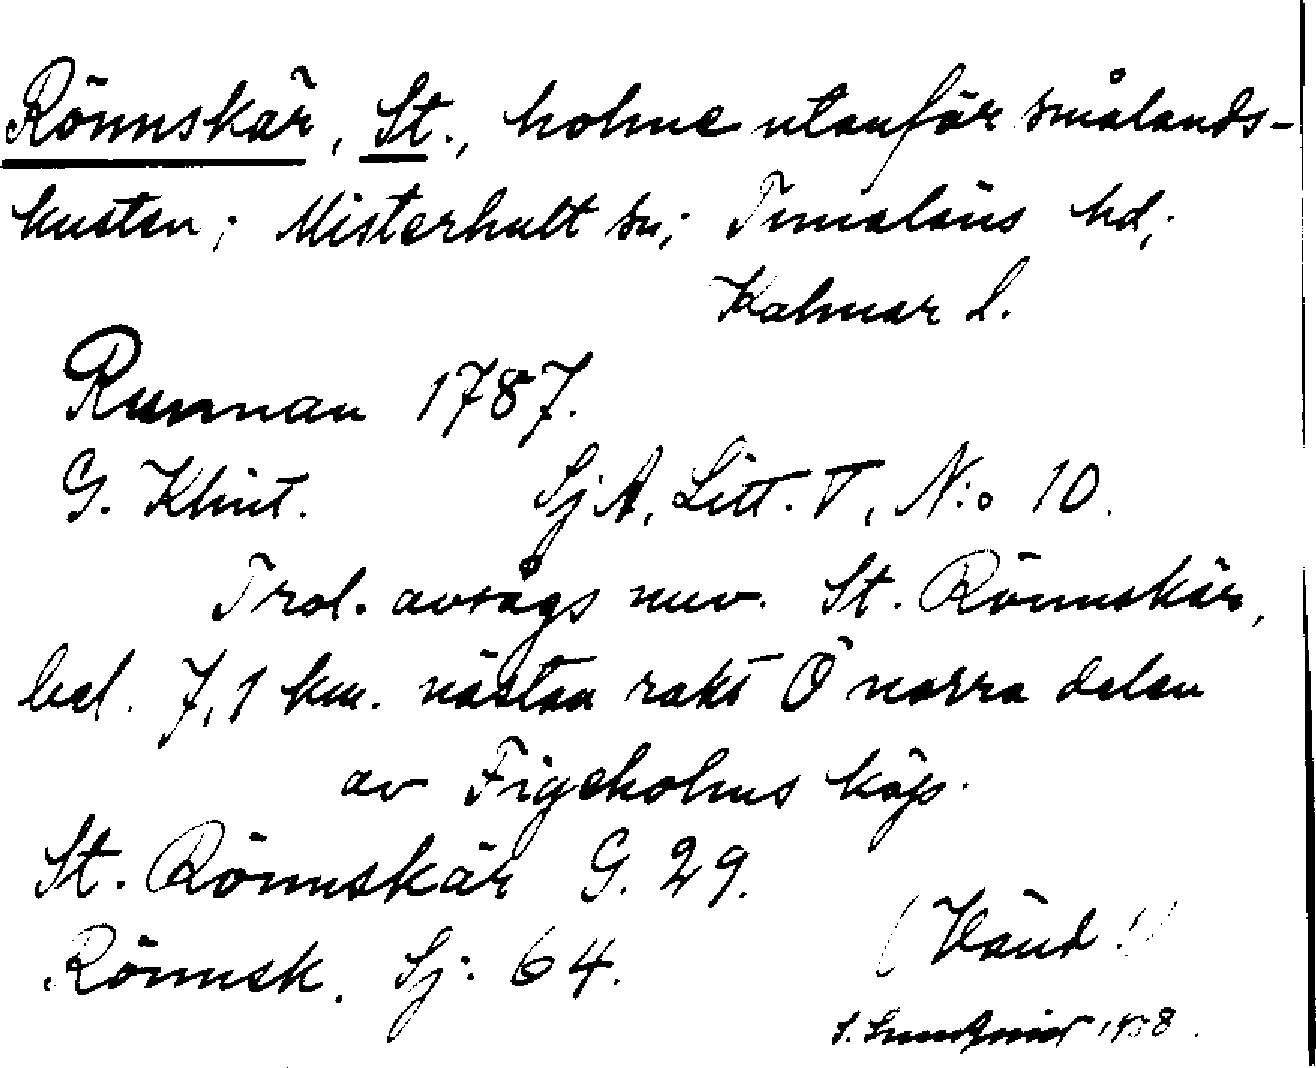 Rönnskär, St., holme utanför smålands-
kusten; Misterhult sn; Tunaläns hd;
Kalmar l.
Runnan 1787.
G. Klint. SjA, Litt. T, N:o 10.
Trol. avsågs nuv. St. Rönnskär,
bel. 7,1 km. nästan rakt Ö norra delen
av Figeholms köp.
St. Rönnskär G. 29.
Rönnsk. Sj: 64.
(Vänd!)
S. 1958.